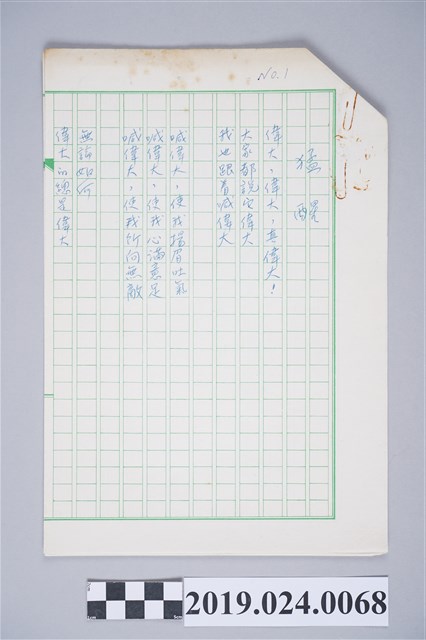 No.1
猛醒
偉大，偉大，真偉大！
大家都說它偉大
我也跟着喊偉大
喊偉大，使我揚眉吐氣
喊偉大，使我心滿意足
喊偉大，使我所向無敵
無論如何
偉大的總是偉大
2019.024.0068